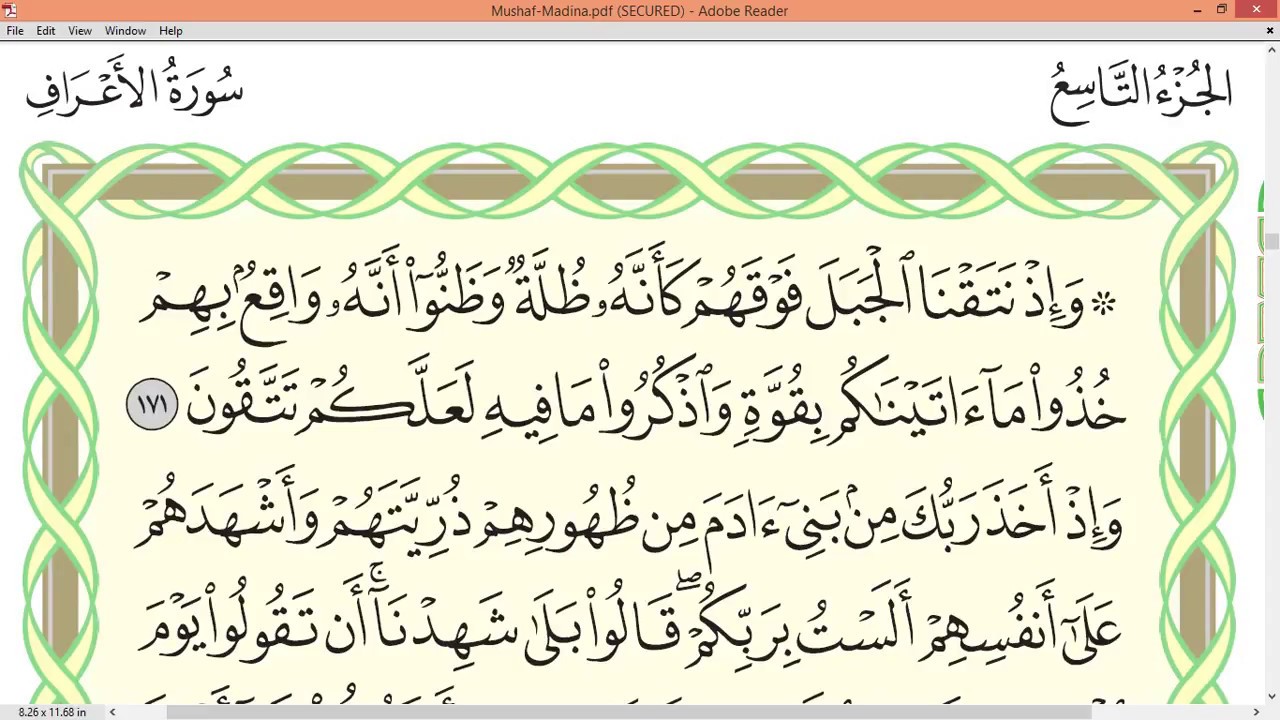 Mushaf-Madina.pdf (SECURED) - Adobe Reader
File Edit View Window Help
الجُزْءُ التَّاسِعُ سُورَةُ الأَعْرَافِ
۞ وَإِذۡ نَتَقۡنَا ٱلۡجَبَلَ فَوۡقَهُمۡ كَأَنَّهُۥ ظُلَّةٞ وَظَنُّوٓاْ أَنَّهُۥ وَاقِعُۢ بِهِمۡ
خُذُواْ مَآ ءَاتَيۡنَٰكُم بِقُوَّةٖ وَٱذۡكُرُواْ مَا فِيهِ لَعَلَّكُمۡ تَتَّقُونَ ١٧١
وَإِذۡ أَخَذَ رَبُّكَ مِنۢ بَنِيٓ ءَادَمَ مِن ظُهُورِهِمۡ ذُرِّيَّتَهُمۡ وَأَشۡهَدَهُمۡ
عَلَىٰٓ أَنفُسِهِمۡ أَلَسۡتُ بِرَبِّكُمۡۖ قَالُواْ بَلَىٰ شَهِدۡنَآۚ أَن تَقُولُواْ يَوۡمَ
8.26 x 11.68 in